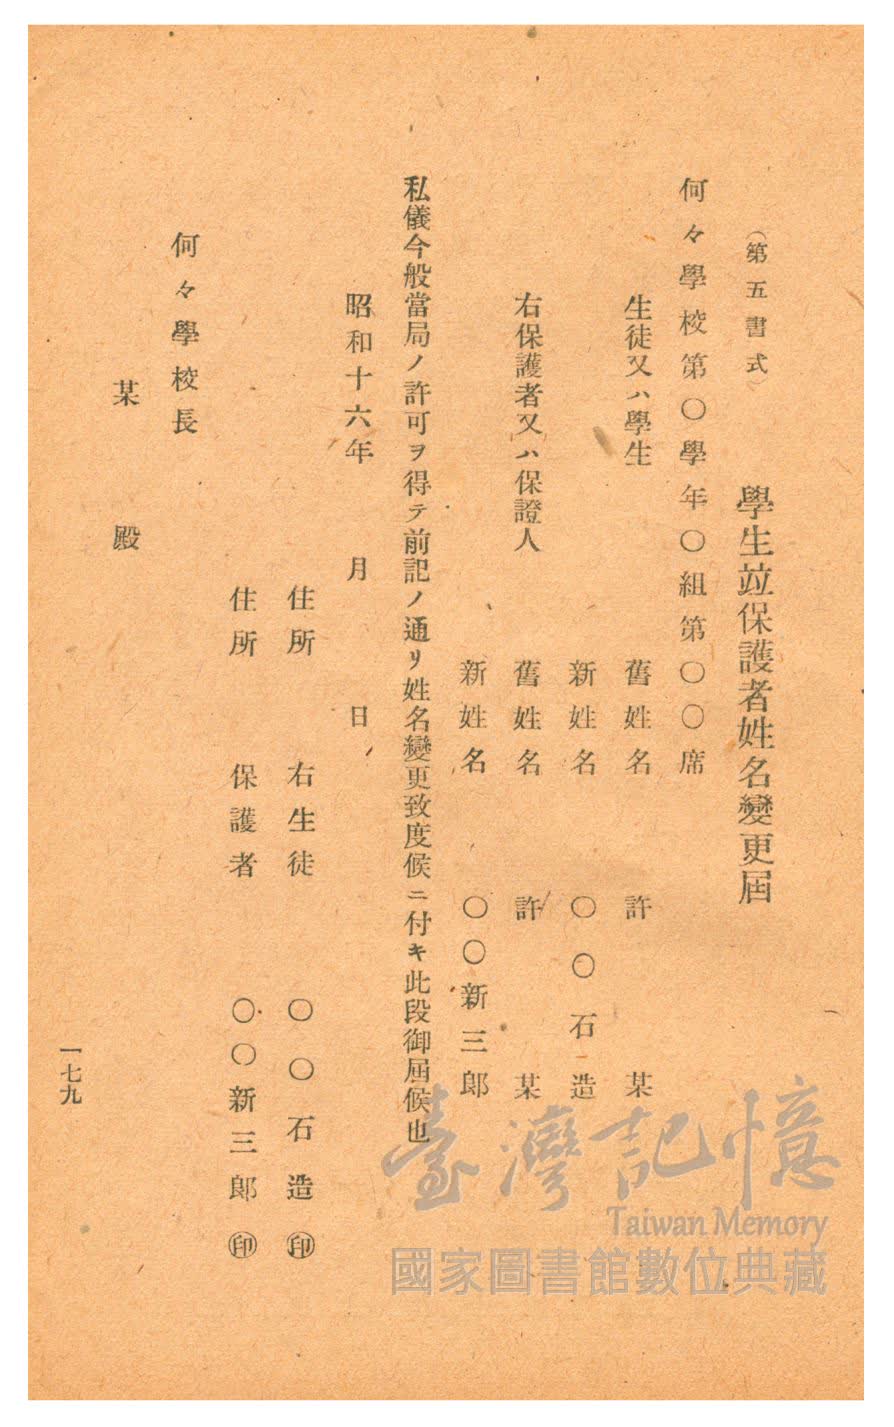 （第五書式） 學生竝保護者姓名變更屆
何々學校第〇學年〇組第〇〇席
生徒又ハ學生 舊姓名 許 某
新姓名 〇〇石造
右保護者又ハ保證人 舊姓名 許 某
新姓名 〇〇新三郎
私儀今般當局ノ許可ヲ得テ前記ノ通リ姓名變更致度候ニ付キ此段御屆候也
昭和十六年 月 日
住所 右生徒 〇〇石造㊞
住所 保護者 〇〇新三郎㊞
何々學校長
某 殿
一七九
臺灣記憶
Taiwan Memory
國家圖書館數位典藏